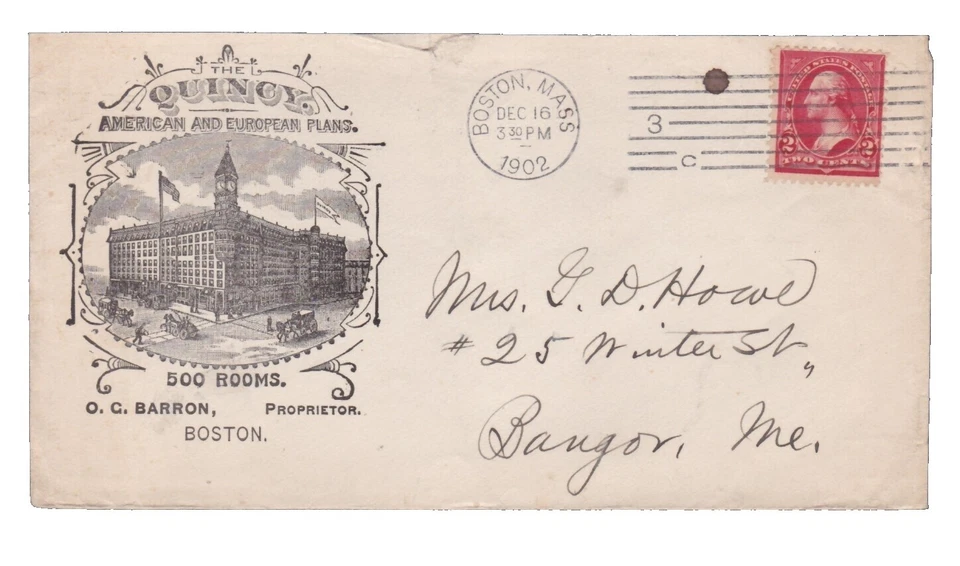 THE
QUINCY.
AMERICAN AND EUROPEAN PLANS.
500 ROOMS.
O. G. BARRON, PROPRIETOR.
BOSTON.
BOSTON, MASS
DEC 16
3 30 PM
1902
3
C
UNITED STATES POSTAGE
2 2
TWO CENTS
Mrs. G. D. Howe
#25 Winter St,,
Bangor, Me.